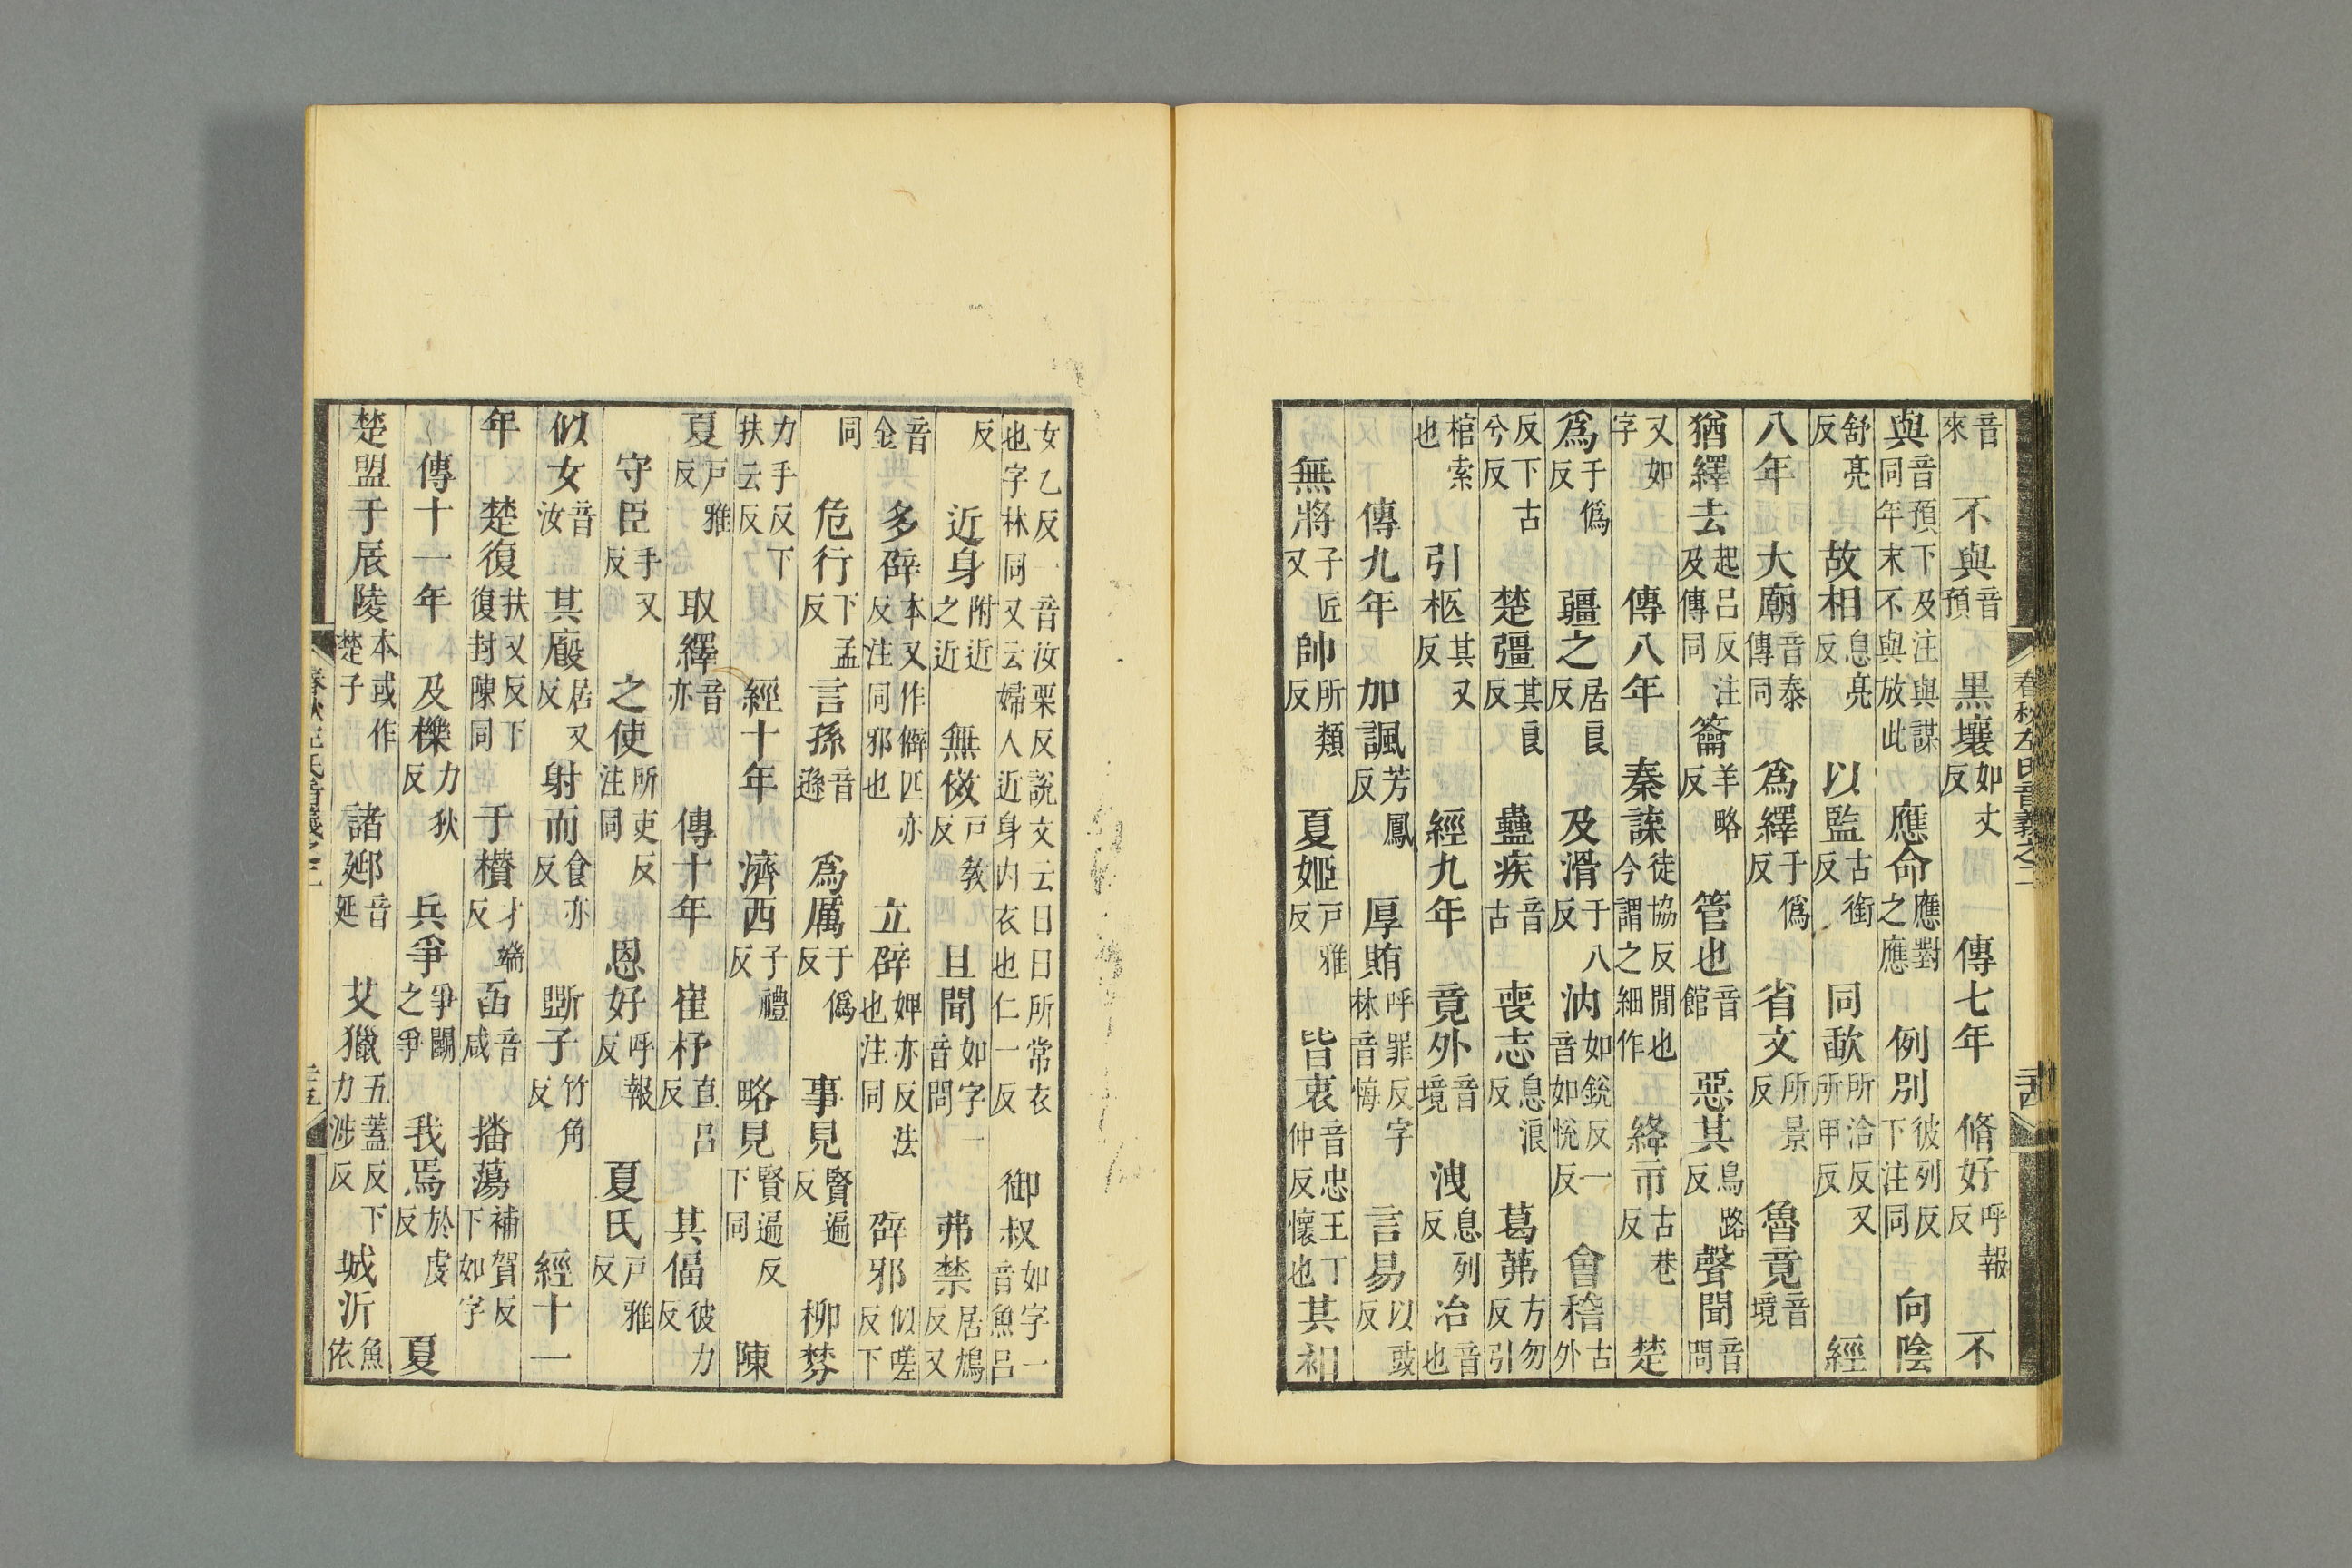 音來　不與音預　黑壤如丈反　傳七年　脩好呼報反　不
與音預下及注與謀同年末不與放此　應命應對之應　例別彼列反下注同　向陰
舒亮反　故相息亮反　以監古銜反　同歃所洽反又所甲反　經
八年　大廟音泰傳同　爲繹于僞反　省文所景反　魯竟音境
猶繹去起呂反注及傳同　籥羊略反　管也音館　惡其烏路反　聲聞音問
又如字　傳八年　秦諜徒協反閒也今謂之細作　絳市古巷反　楚
爲于僞反　疆之居良反　及滑于八反　汭如銳反一音如悅反　會稽古外
反下古兮反　楚彊其良反　蠱疾音古　喪志息浪反　葛茀方勿反引
棺索也　引柩其又反　經九年　竟外音境　洩息列反　冶音也
傳九年　加諷芳鳳反　厚賄呼罪反字林音悔　言易以豉反
無將子匠又　帥所類反　夏姬戶雅反　皆衷音忠王丁仲反懷也　其衵
女乙反一音汝栗反說文云日日所常衣也字林同又云婦人近身內衣也仁一反　御叔如字一音魚呂
反　近身附近之近　無傚戶教反　且聞如字一音問　弗禁居鴆反又
音金　多辟本又作僻匹亦反注同邪也　立辟婢亦反法也注同　辟邪似嗟反下
同　危行下孟反　言孫音遜　爲厲于僞反　事見賢遍反　柳棼
扶云反　力手反下　經十年　濟西子禮反　略見賢遍反下同　陳
夏戶雅反　取繹音亦　傳十年　崔杼直呂反　其偪彼力反
守臣手又反　之使所吏反注同　恩好呼報反　夏氏戶雅反
似女音汝　其廄居又反　射而食亦反　斲子竹角反　經十一
年　楚復扶又反下復封陳同　于欑才端反　函音咸　播蕩補賀反下如字
傳十一年　及櫟力狄反　兵爭爭鬭之爭　我焉於虔反　夏
楚盟于辰陵本或作楚子　諸郔音延　艾獵五蓋反下力涉反　城沂魚依